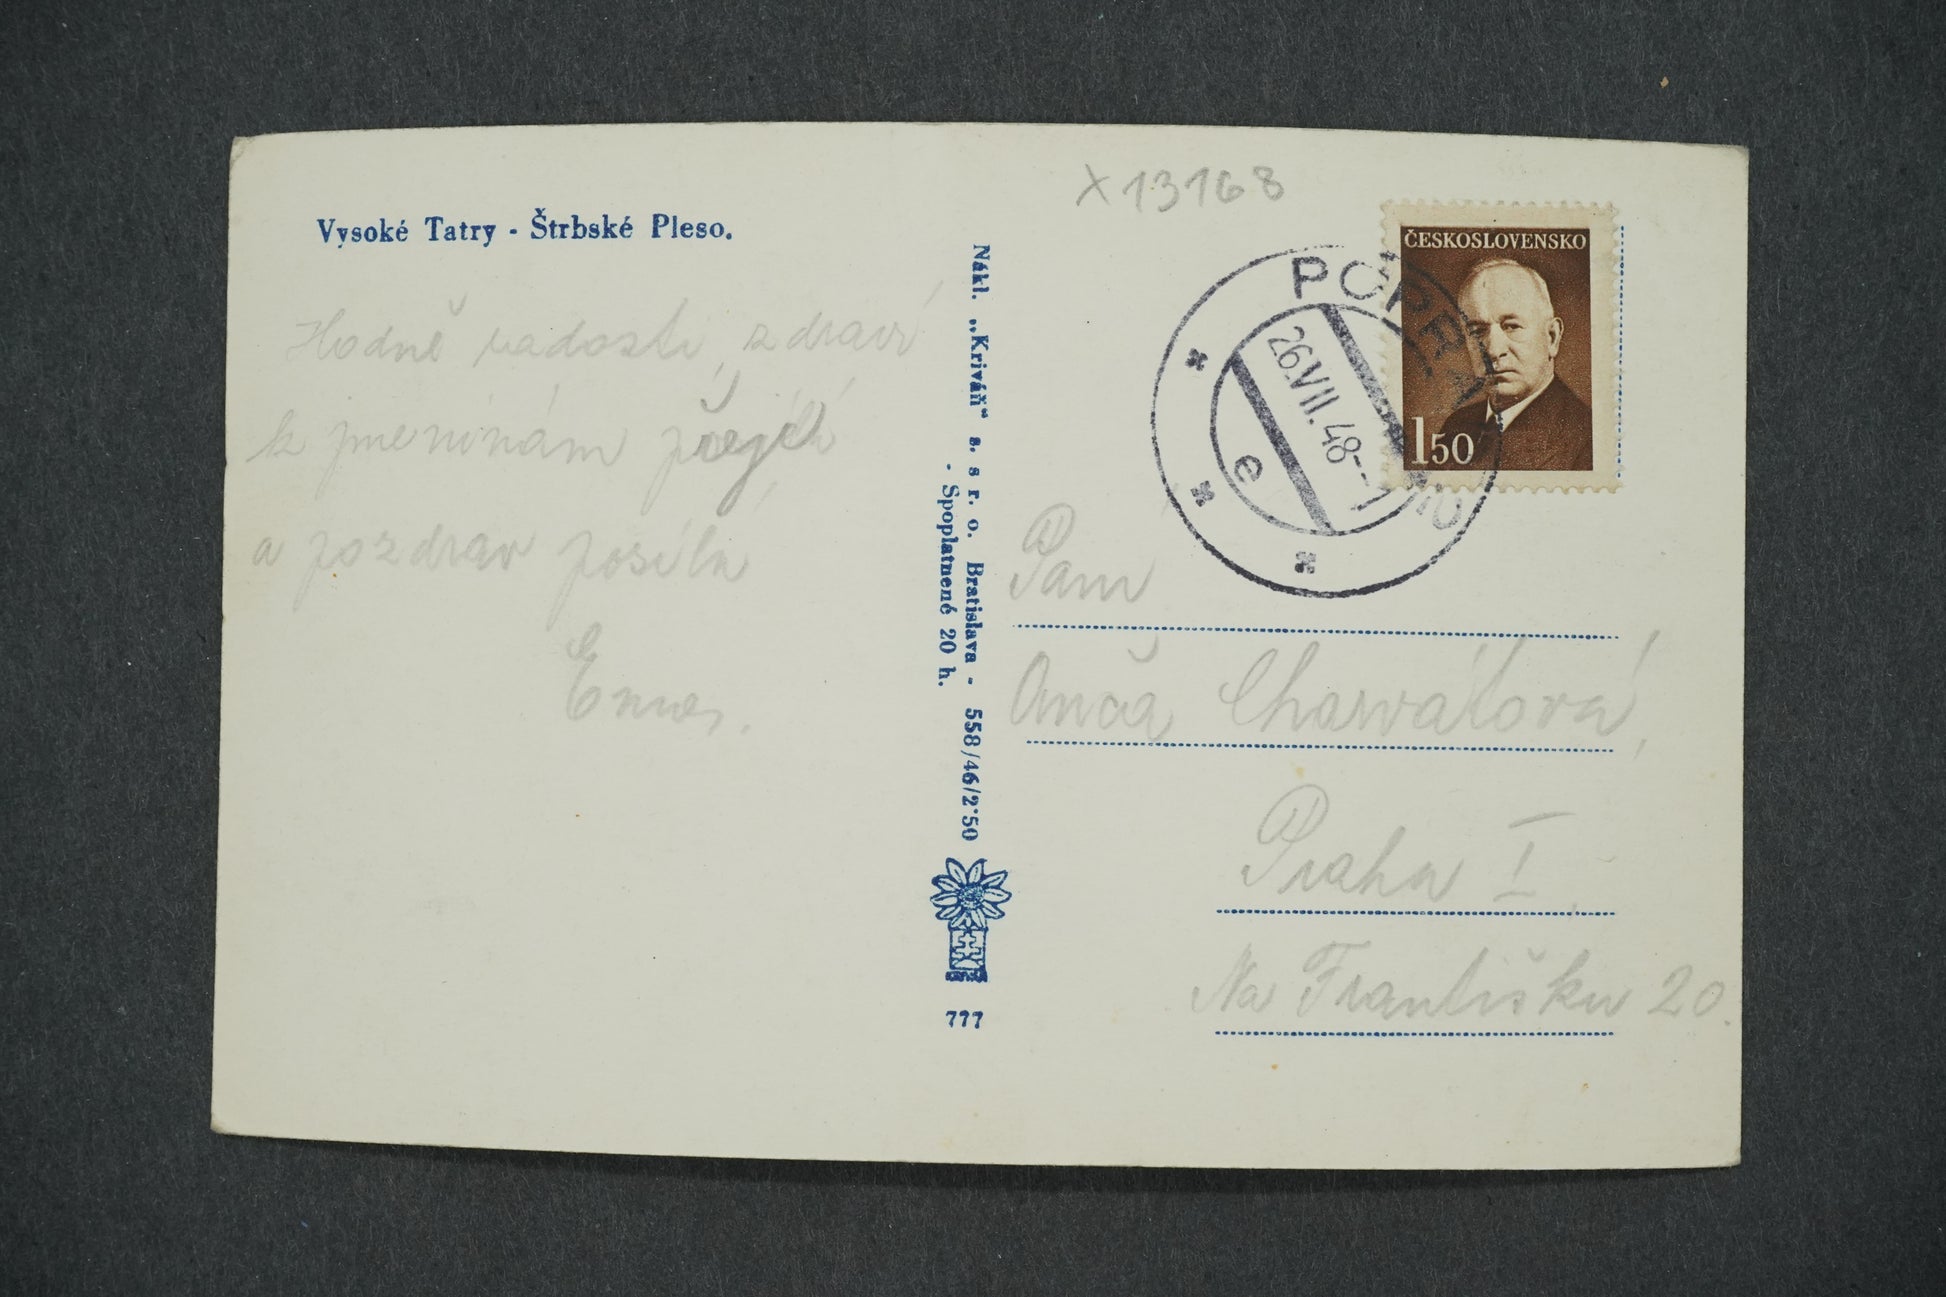 Vysoké Tatry - Štrbské Pleso.
Hodně radosti zdraví
k jmeninám přejí
a pozdrav posílá
Nákl. „Kriváň“ s. s r. o. Bratislava - 558/46/2·50
- Spoplatnené 20 h.
777
X 13168
ČESKOSLOVENSKO
150
POPRAD
26.VII.48--7
e
Paní
Anča Charvátová,
Praha I.
Na Františku 20.